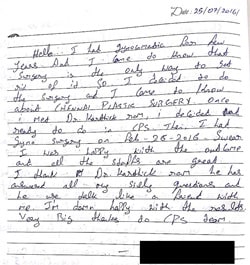 Date: 25/07/2016
Hello I had Gynecomastia for few
years And I came to know that
Surgery is the only way to get
rid of it So I decided to do
the surgery and I came to know
about CHENNAI PLASTIC SURGERY Once
I met Dr. Karthick ram i decided and
ready to do in CPS Then I had
Gyno surgery on Feb-26-2016. I swear
I was happy with the outcome
and all the staffs are great
I thank Dr Karthick ram he has
answered all my silly questions and
he talk like a friend with
me I'm damn happy with the results
Very Big thanks to CPS team